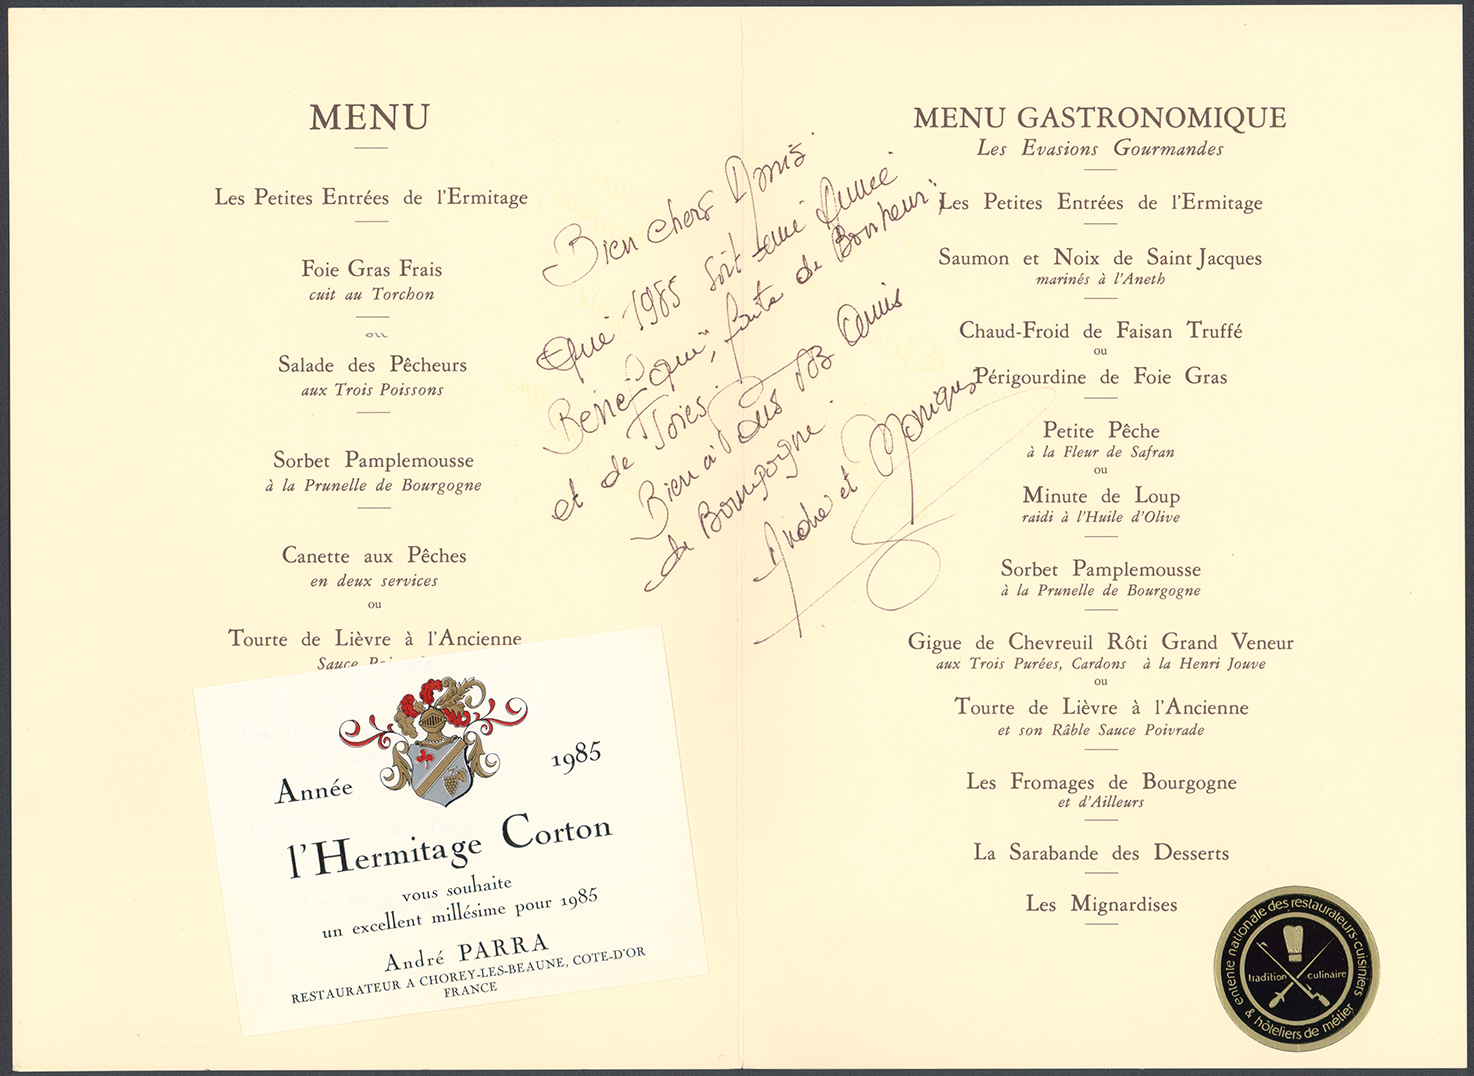 MENU
Les Petites Entrées de l'Ermitage
Foie Gras Frais
cuit au Torchon
ou
Salade des Pêcheurs
aux Trois Poissons
Sorbet Pamplemousse
à la Prunelle de Bourgogne
Canette aux Pêches
en deux services
ou
Tourte de Lièvre à l'Ancienne
Sauce
Année 1985
l'Hermitage Corton
vous souhaite
un excellent millésime pour 1985
André PARRA
RESTAURATEUR A CHOREY-LES-BEAUNE, COTE-D'OR
FRANCE
Bien chers Amis
Que 1985 soit une Année
Bénéfique, faite de Bonheur,
et de Joies.
Bien à vous vos Amis
de Bourgogne.
André et Monique
MENU GASTRONOMIQUE
Les Evasions Gourmandes
Les Petites Entrées de l'Ermitage
Saumon et Noix de Saint Jacques
marinés à l'Aneth
Chaud-Froid de Faisan Truffé
ou
Périgourdine de Foie Gras
Petite Pêche
à la Fleur de Safran
ou
Minute de Loup
raidi à l'Huile d'Olive
Sorbet Pamplemousse
à la Prunelle de Bourgogne
Gigue de Chevreuil Rôti Grand Veneur
aux Trois Purées, Cardons à la Henri Jouve
ou
Tourte de Lièvre à l'Ancienne
et son Râble Sauce Poivrade
Les Fromages de Bourgogne
et d'Ailleurs
La Sarabande des Desserts
Les Mignardises
entente nationale des restaurateurs-cuisiniers
& hôteliers de métier
tradition culinaire